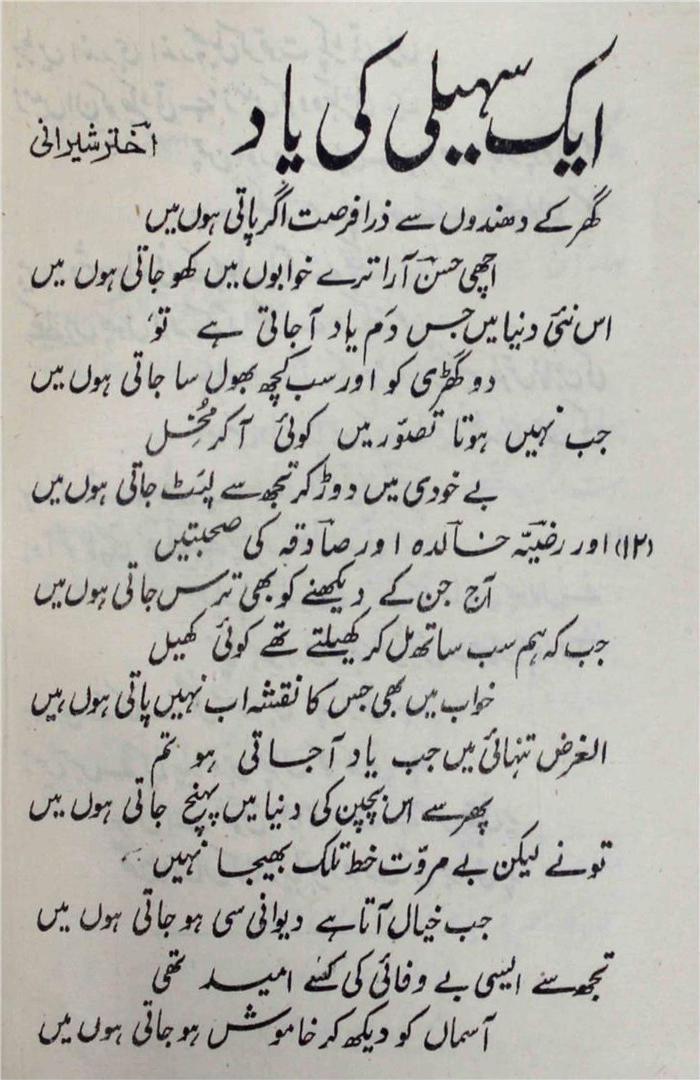 ایک سہیلی کی یاد
اخترشیرانی
گھر کے دھندوں سے ذرا فرصت اگر پاتی ہوں میں
اچھی حسن آرا ترے خوابوں میں کھو جاتی ہوں میں
اس نئی دنیا میں جس دَم یاد آجاتی ہے تو
دو گھڑی کو اور سب کچھ بھول سا جاتی ہوں میں
جب نہیں ہوتا تصوّر میں کوئی آکر مُخِل
بے خودی میں دوڑ کر تجھ سے لپَٹ جاتی ہوں میں
(۱۲) اور رضیّہ خالدہ اور صادقہ کی صحبتیں
آج جن کے دیکھنے کو بھی ترس جاتی ہوں میں
جب کہ ہم سب ساتھ مل کر کھیلتے تھے کوئی کھیل
خواب میں بھی جس کا نقشہ اب نہیں پاتی ہوں میں
الغرض تنہائی میں جب یاد آجاتی ہو تم
پھر سے اس بچپن کی دنیا میں پہنچ جاتی ہوں میں
تونے لیکن بے مروّت خط تلک بھیجا نہیں
جب خیال آتا ہے دیوانی سی ہو جاتی ہوں میں
تجھ سے ایسی بے وفائی کی کسے امید تھی
آسماں کو دیکھ کر خاموش ہو جاتی ہوں میں